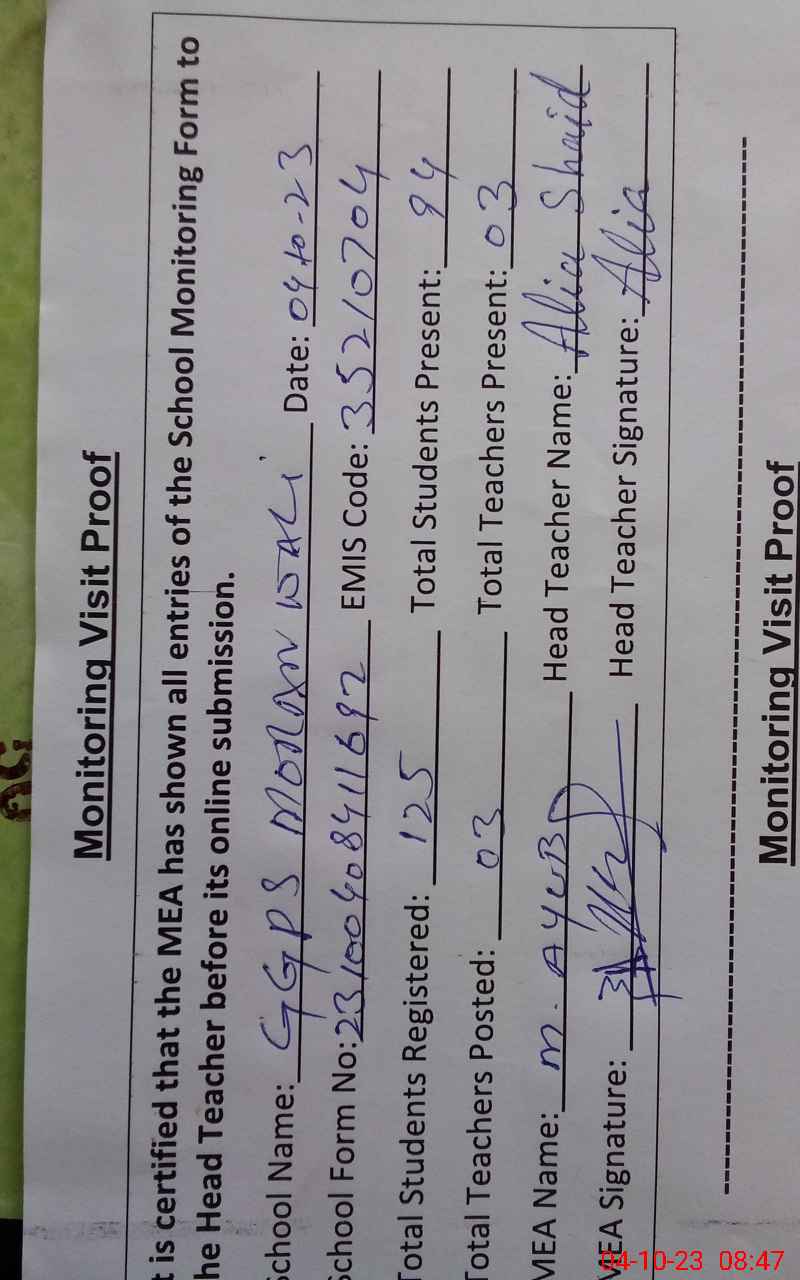 Monitoring Visit Proof
t is certified that the MEA has shown all entries of the School Monitoring Form to
he Head Teacher before its online submission.
School Name: GGPS MORAN WALI Date: 04-10-23
School Form No: 23100408411692 EMIS Code: 35210704
Total Students Registered: 125 Total Students Present: 94
Total Teachers Posted: 03 Total Teachers Present: 03
MEA Name: M. AYUB Head Teacher Name: Alia Shaid
MEA Signature: Head Teacher Signature: Alia
Monitoring Visit Proof
04-10-23 08:47